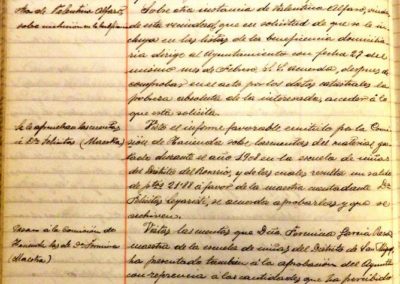 tra de Valentina Alfaro
sobre inclusion en la beneficencia
Sobre otra instancia de Valentina Alfaro,
de esta vecindad, que en solicitud de que se la in
cluya en las listas de la beneficencia domicilia
ria dirige al Ayuntamiento con fecha 27 del
mismo mes de Febrero. S.S. acuerda, despues de
comprobar en el acto por los datos catastrales la
pobreza absoluta de la interesada, acceder á lo
que esta solicita.
Se le aprueban las cuentas
á Dª Felicitas (Maestra)
Visto el informe favorable emitido por la Comi
sión de Hacienda sobre las cuentas del material gas
tado durante el año 1908 en la escuela de niñas
del Distrito del Rosario, y de las cuales resulta un saldo
de ptas 21'88 á favor de la maestra cuentadante Dª
Felicitas, se acuerda aprobarlas y que se
archiven.
Pasan á la Comisión de
Hacienda las de Dª Fermina
(Maestra)
Vistas las cuentas que Dña Fermina Garcia
maestra de la escuela de niñas del Distrito de San
ha presentado tambien á la aprobación del Ayunto
con referencia á las cantidades que ha percibido